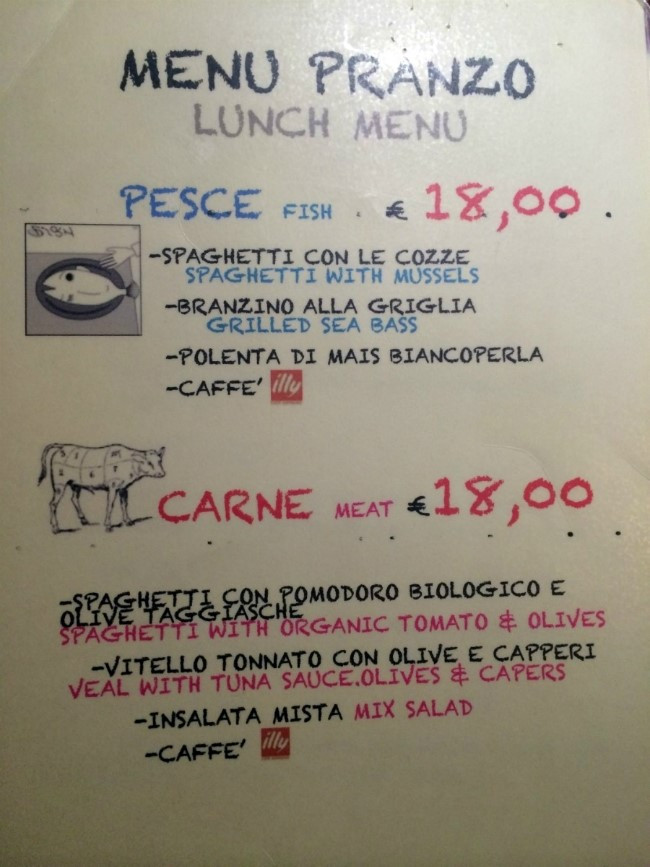 MENU PRANZO
LUNCH MENU
PESCE FISH . € 18,00 .
-SPAGHETTI CON LE COZZE
SPAGHETTI WITH MUSSELS
-BRANZINO ALLA GRIGLIA
GRILLED SEA BASS
-POLENTA DI MAIS BIANCOPERLA
-CAFFE' illy
CARNE MEAT €18,00
-SPAGHETTI CON POMODORO BIOLOGICO E
OLIVE TAGGIASCHE
SPAGHETTI WITH ORGANIC TOMATO & OLIVES
-VITELLO TONNATO CON OLIVE E CAPPERI
VEAL WITH TUNA SAUCE.OLIVES & CAPERS
-INSALATA MISTA MIX SALAD
-CAFFE' illy